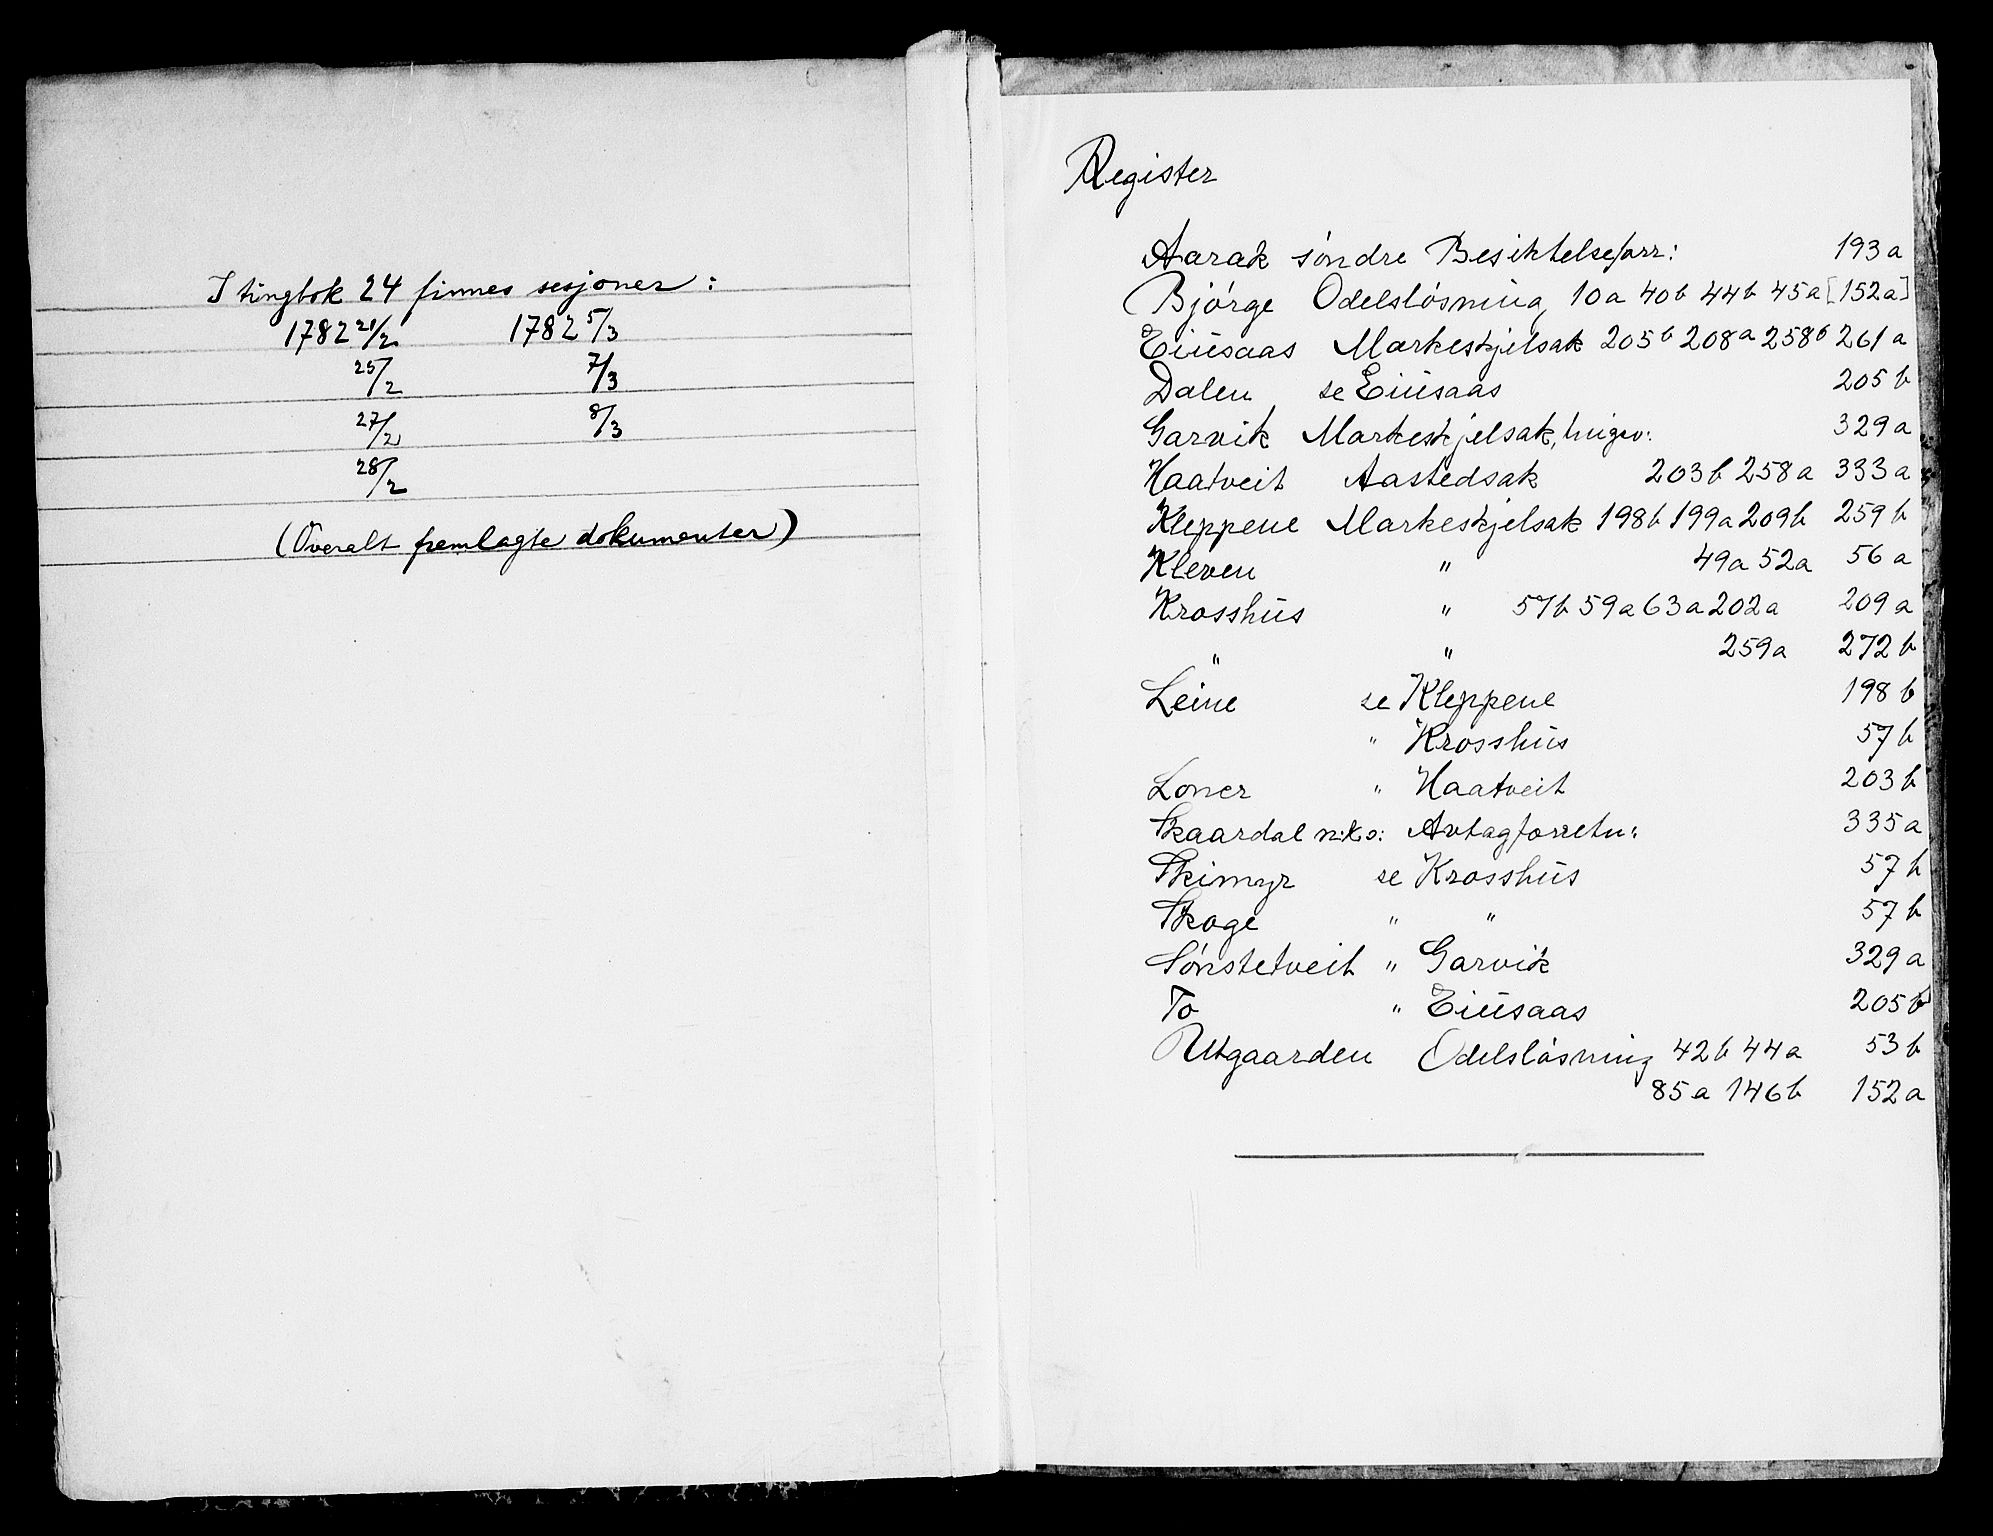 I tingbok 24 finnes sesjoner :
1782 21/2 1782 5/3
25/2 7/3
27/2 8/3
28/2
(Overalt fremlagte dokumenter)
Register
Aarak söndre Besiktelseforr: 193a
Bjórge Odelslósning 10a 40b 44b 45a [152a]
Eiúsaas Markeskjelsak 205b 208a 258b 261a
Dalen se Eiúsaas 205b
Garvik Markeskjelsak, 329a
Haatveit Aastedsak 203b 258a 333a
Kleppene Markeskjelsak 198b 199a 209b 259b
Kleven " 49a 52a 56a
Krosshús " 57b 59a 63a 202a 209a
" " 259a 272b
Leine se Kleppene 198b
" Krosshús 57b
Loner " Haatveit 203b
Skaardal n:k o: Avtagforretn: 335a
Skimyr se Krosshús 57b
Skoge " " 57b
Sónstetveit " Garvik 329a
To " Eiúsaas 205b
Utgaarden Odelslósning 42b 44a 53b
85a 146b 152a